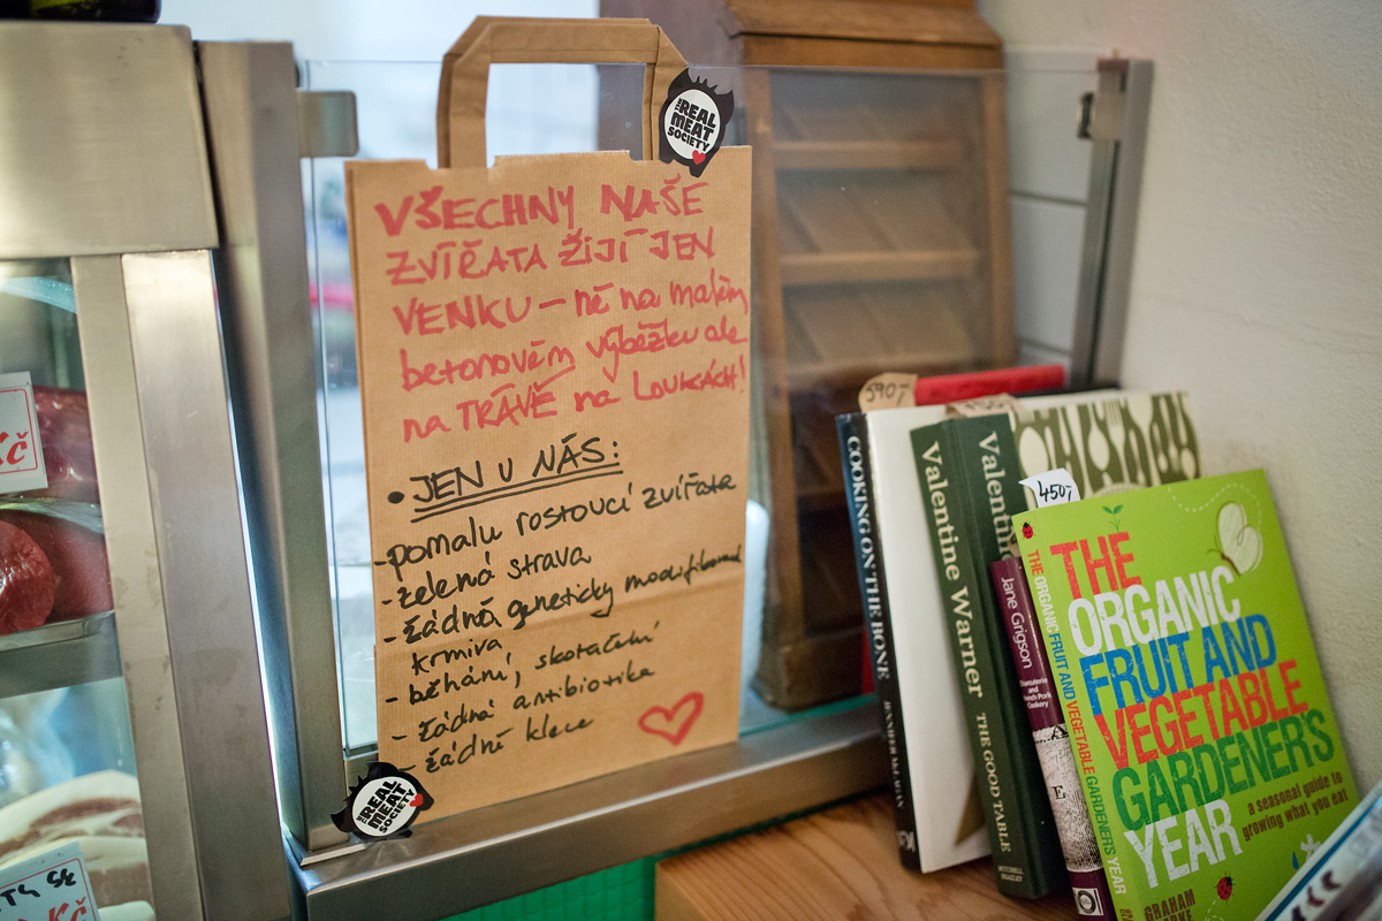 THE
REAL
MEAT
SOCIETY
VŠECHNY NAŠE
ZVÍŘATA ŽIJÍ JEN
VENKU – né na malém
betonovém výběžku ale
na TRÁVĚ na LOUKÁCH!
• JEN U NÁS:
- pomalu rostoucí zvířata
- zelená strava
- žádná geneticky modifikovaná
krmiva
- běhání, skotačení
- žádná antibiotika
- žádné klece
THE
REAL
MEAT
SOCIETY
Kč
Kč
590,-
450,-
COOKING ON THE BONE
JENNIFER MCLAGAN
Valentine Warner
THE GOOD TABLE
MITCHELL
BEAZLEY
Jane Grigson
Charcuterie
and
French Pork
Cookery
THE ORGANIC FRUIT AND VEGETABLE GARDENER'S YEAR
THE
ORGANIC
FRUIT AND
VEGETABLE
GARDENER'S
YEAR
a seasonal guide to
growing what you eat
GRAHAM